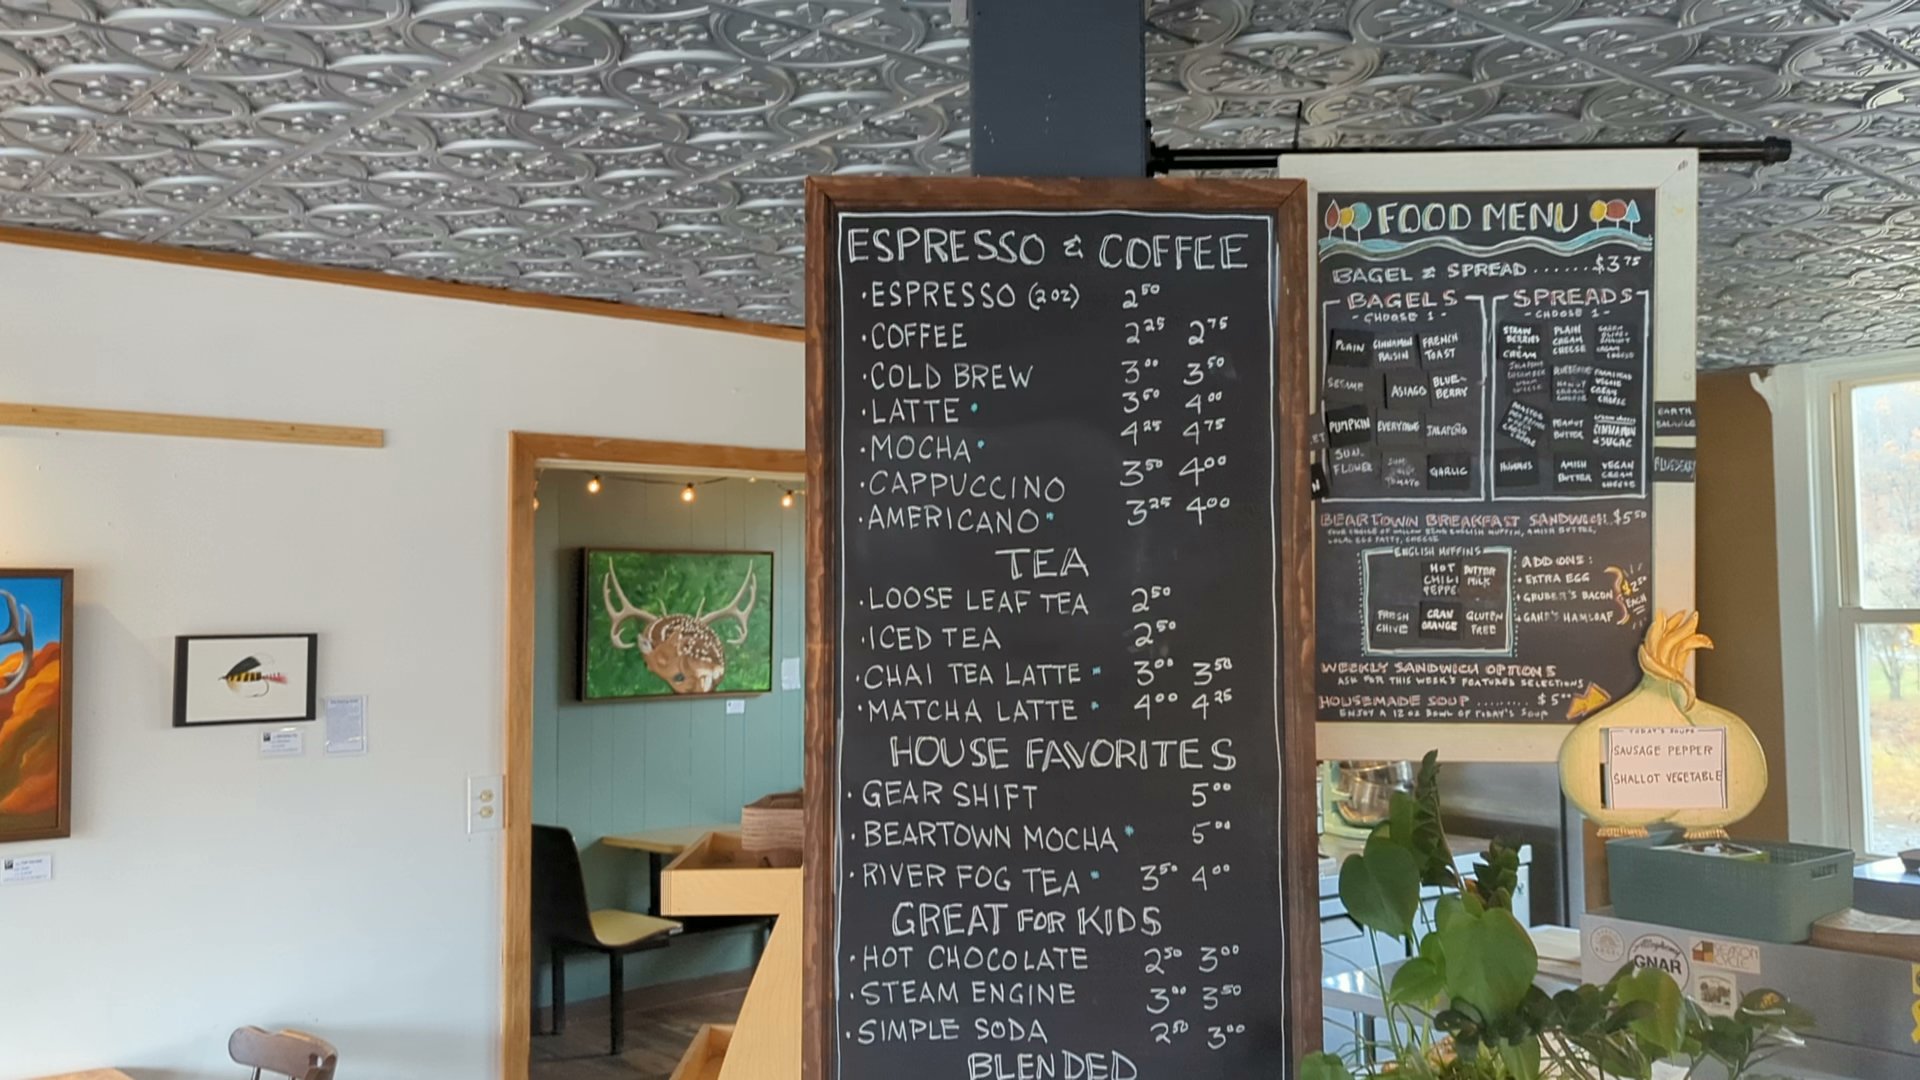 ESPRESSO & COFFEE
• ESPRESSO (2 OZ) 2⁵⁰
• COFFEE 2²⁵ 2⁷⁵
• COLD BREW 3⁰⁰ 3⁵⁰
• LATTE * 3⁵⁰ 4⁰⁰
• MOCHA * 4²⁵ 4⁷⁵
• CAPPUCCINO 3⁵⁰ 4⁰⁰
• AMERICANO * 3²⁵ 4⁰⁰
TEA
• LOOSE LEAF TEA 2⁵⁰
• ICED TEA 2⁵⁰
• CHAI TEA LATTE * 3⁰⁰ 3⁵⁰
• MATCHA LATTE * 4⁰⁰ 4²⁵
HOUSE FAVORITES
• GEAR SHIFT 5⁰⁰
• BEARTOWN MOCHA * 5⁰⁰
• RIVER FOG TEA * 3⁵⁰ 4⁰⁰
GREAT FOR KIDS
• HOT CHOCOLATE 2⁵⁰ 3⁰⁰
• STEAM ENGINE 3⁰⁰ 3⁵⁰
• SIMPLE SODA 2⁵⁰ 3⁰⁰
BLENDED
FOOD MENU
BAGEL & SPREAD ...... $3⁷⁵
BAGELS
- CHOOSE 1 -
PLAIN
CINNAMON RAISIN
FRENCH TOAST
SESAME
ASIAGO
BLUE-
BERRY
PUMPKIN
EVERYTHING
JALAPEÑO
SUN-
FLOWER
TOMATO
GARLIC
SPREADS
- CHOOSE 1 -
STRAW
BERRIES
CREAM
PLAIN
CREAM
CHEESE
PEANUT
BUTTER
CINNAMON
SUGAR
HUMMUS
AMISH
BUTTER
VEGAN
CREAM
CHEESE
EARTH
BALANCE
BLUEBERRY
BEARTOWN BREAKFAST SANDWICH $5⁵⁰
ENGLISH MUFFINS
HOT
CHILI
PEPPE
BUTTER
MILK
FRESH
CHIVE
CRAN
ORANGE
GLUTEN
FREE
ADD ONS:
• EXTRA EGG
• GRUBER'S BACON
EACH
WEEKLY SANDWICH OPTIONS
ASK FOR THIS WEEK'S FEATURED SELECTIONS
HOUSEMADE SOUP ........ $5⁰⁰
ENJOY A 12 OZ BOWL OF TODAY'S SOUP
TODAY'S SOUPS
SAUSAGE PEPPER
SHALLOT VEGETABLE
GNAR